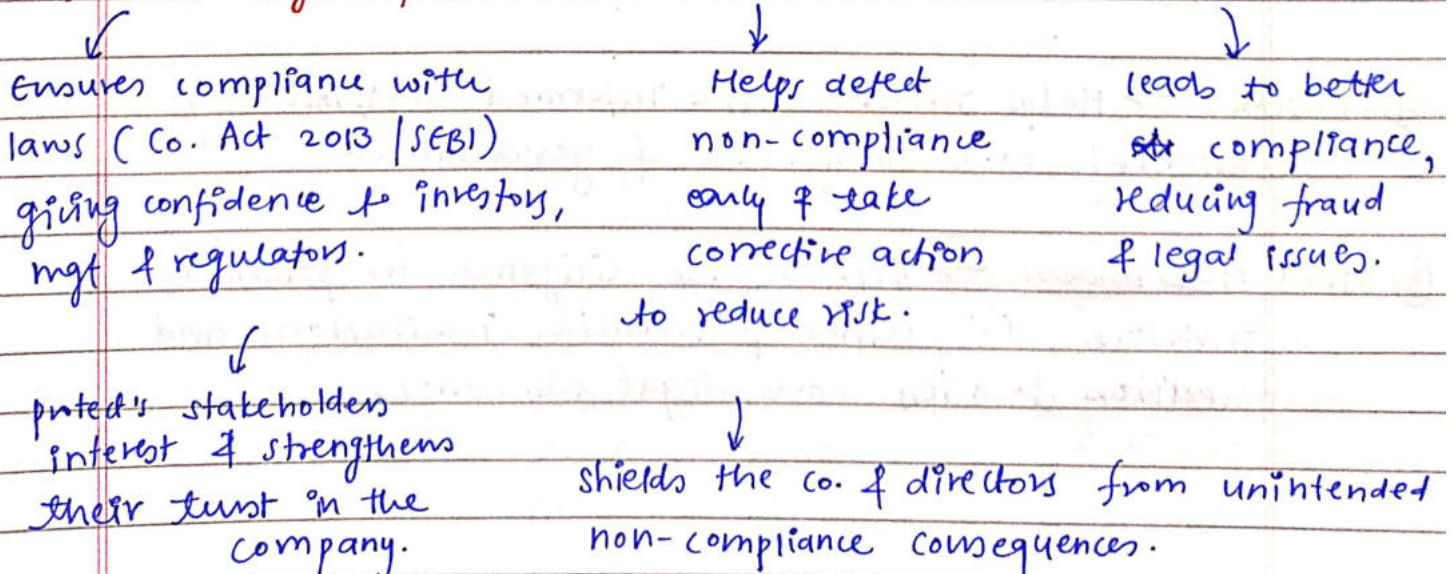 Ensures compliance with
laws ( Co. Act 2013 | SEBI)
giving confidence to investors,
mgt & regulators.
Helps detect
non-compliance
early & take
corrective action
to reduce risk.
leads to better
compliance,
reducing fraud
& legal issues.
protect's stakeholders
interest & strengthens
their turst in the
company.
shields the co. & directors from unintended
non-compliance consequences.